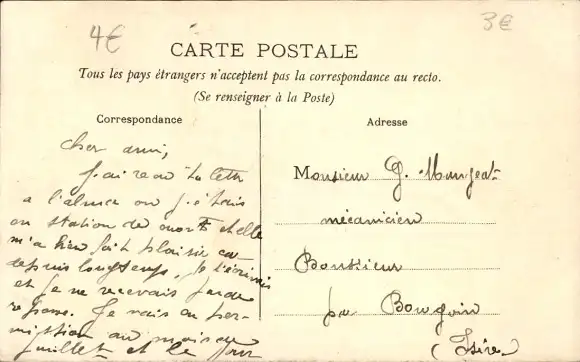 4€
3€
CARTE POSTALE
Tous les pays étrangers n'acceptent pas la correspondance au recto.
(Se renseigner à la Poste)
Correspondance
Adresse
Cher ami,
J'ai reçu ta lettre
a l'alma où j'étais
en station de et elle
m'a bien fait plaisir car
depuis longtemps, je t'écrivais
et je ne recevais pas de
réponse. Je vais en per-
mission au mois de
Juillet et le jour
Monsieur G.
mécanicien
par Bourgoin
(Isère)